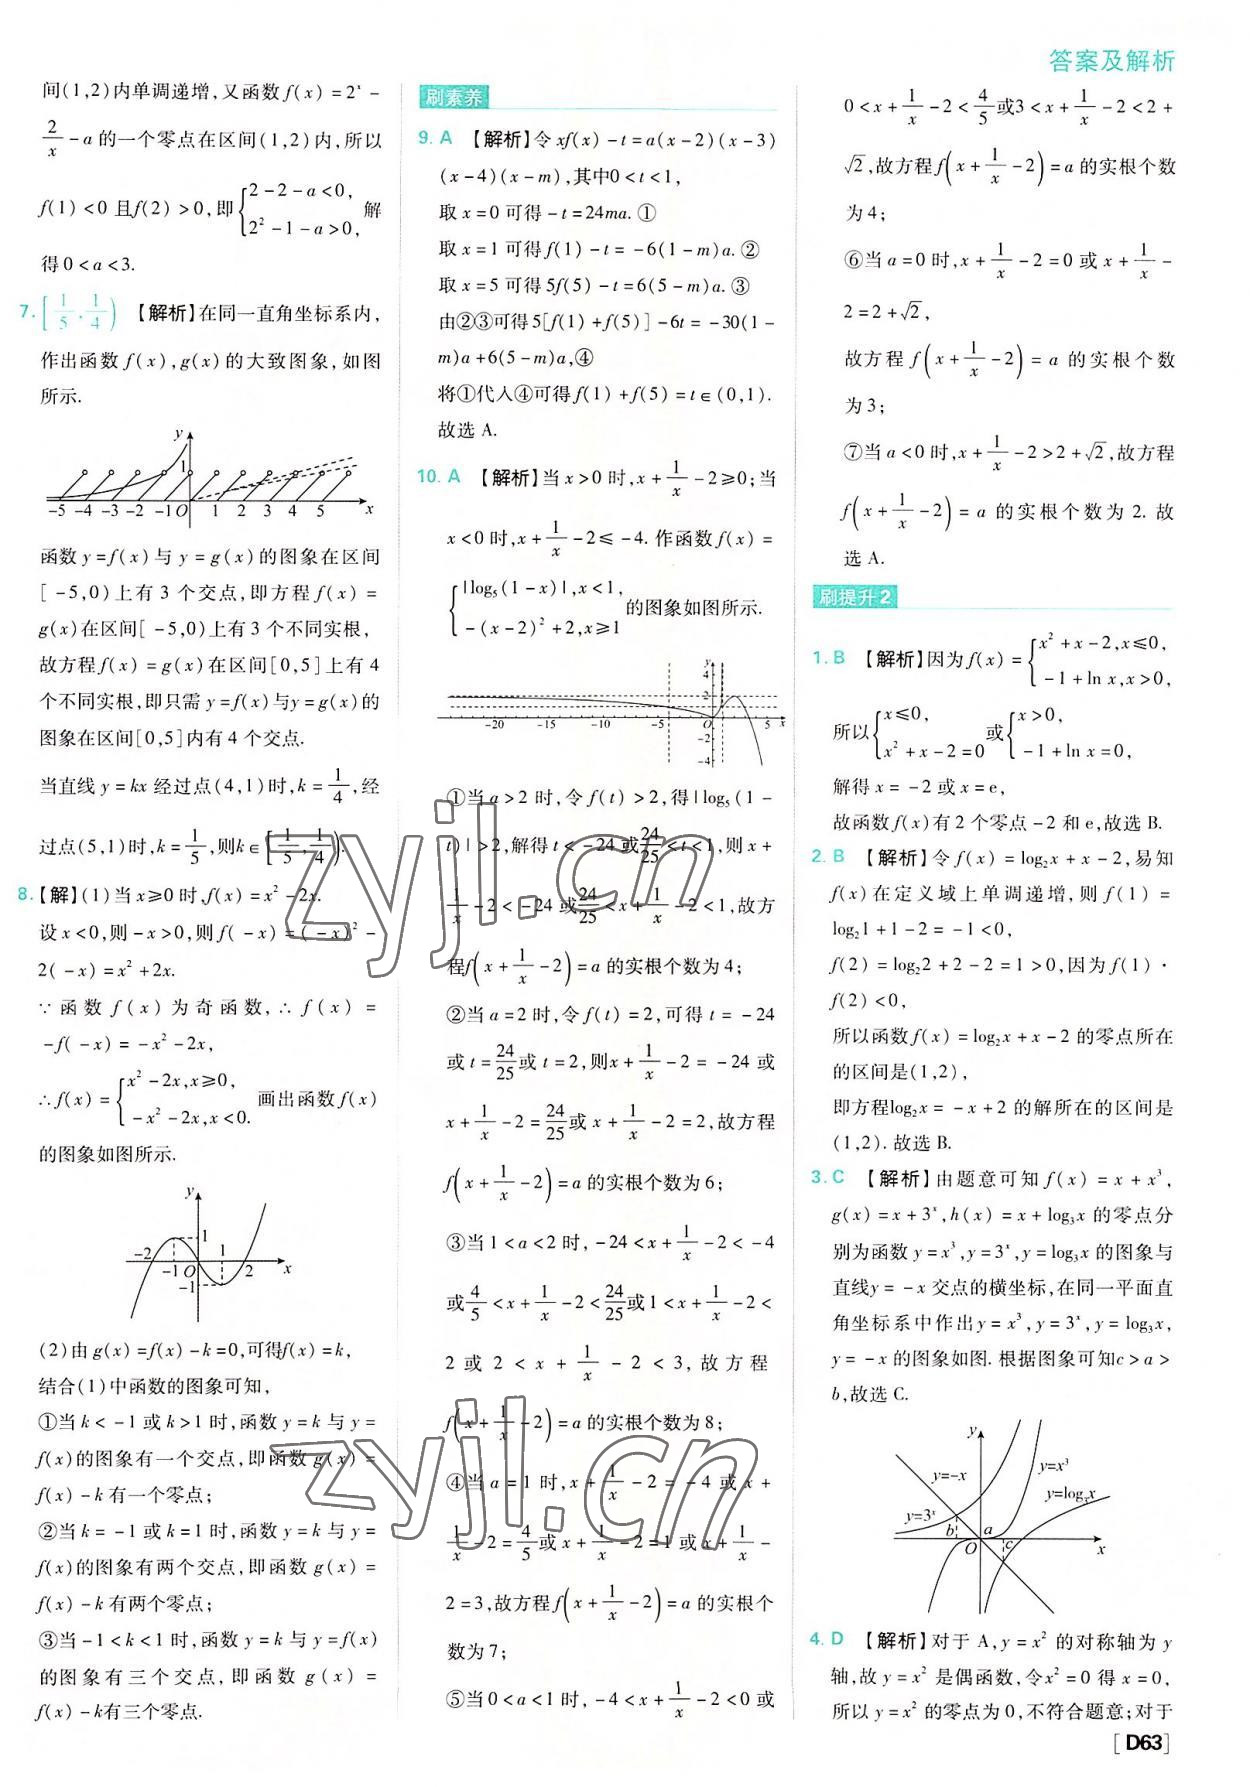 答案及解析
间(1,2)内单调递增,又函数 f(x)=2ˣ-
2/x - a 的一个零点在区间(1,2)内,所以
f(1)<0 且f(2)>0,即{2-2-a<0, 2²-1-a>0, 解
得 0<a<3.
7. [1/5, 1/4) 【解析】在同一直角坐标系内,
作出函数 f(x),g(x)的大致图象,如图
所示.
y
1
-5 -4 -3 -2 -1 O 1 2 3 4 5 x
函数 y=f(x)与 y=g(x)的图象在区间
[-5,0)上有 3 个交点,即方程 f(x)=
g(x)在区间[-5,0)上有 3 个不同实根,
故方程 f(x)=g(x)在区间[0,5]上有 4
个不同实根,即只需 y=f(x)与y=g(x)的
图象在区间[0,5]内有 4 个交点.
当直线 y=kx 经过点(4,1)时,k=1/4,经
过点(5,1)时,k=1/5,则k∈[1/5, 1/4).
8.【解】(1)当 x≥0 时,f(x)=x²-2x.
设 x<0,则-x>0,则 f(-x)=(-x)²-
2(-x)=x²+2x.
∵函数 f(x)为奇函数,∴f(x)=
-f(-x)=-x²-2x,
∴f(x)={x²-2x,x≥0, -x²-2x,x<0. 画出函数 f(x)
的图象如图所示.
y
1
-2 -1 O 1 2 x
-1
(2)由 g(x)=f(x)-k=0,可得f(x)=k,
结合(1)中函数的图象可知,
①当 k<-1 或 k>1 时,函数 y=k 与 y=
f(x)的图象有一个交点,即函数 g(x)=
f(x)-k 有一个零点;
②当 k=-1 或 k=1 时,函数 y=k 与 y=
f(x)的图象有两个交点,即函数 g(x)=
f(x)-k 有两个零点;
③当-1<k<1 时,函数 y=k 与 y=f(x)
的图象有三个交点,即函数 g(x)=
f(x)-k有三个零点.
刷素养
9. A 【解析】令 xf(x)-t=a(x-2)(x-3)
(x-4)(x-m),其中0<t<1,
取 x=0 可得-t=24ma. ①
取 x=1 可得f(1)-t=-6(1-m)a. ②
取 x=5 可得 5f(5)-t=6(5-m)a. ③
由②③可得5[f(1)+f(5)]-6t=-30(1-
m)a+6(5-m)a,④
将①代人④可得f(1)+f(5)=t∈(0,1).
故选 A.
10. A 【解析】当 x>0 时,x+1/x-2≥0;当
x<0 时,x+1/x-2≤-4. 作函数 f(x)=
{|log₅(1-x)|,x<1, -(x-2)²+2,x≥1 的图象如图所示.
y
4
2
-20 -15 -10 -5 O 5 x
-2
-4
①当 a>2 时,令 f(t)>2,得|log₅(1-
t)|>2,解得 t<-24 或24/25<t<1,则 x+
1/x-2<-24 或24/25<x+1/x-2<1,故方
程f(x+1/x-2)=a 的实根个数为 4;
②当 a=2 时,令 f(t)=2,可得 t=-24
或 t=24/25或 t=2,则x+1/x-2=-24 或
x+1/x-2=24/25或 x+1/x-2=2,故方程
f(x+1/x-2)=a 的实根个数为 6;
③当 1<a<2 时,-24<x+1/x-2<-4
或4/5<x+1/x-2<24/25或 1<x+1/x-2<
2 或 2<x+1/x-2<3,故方程
f(x+1/x-2)=a 的实根个数为 8;
④当 a=1 时,x+1/x-2=-4 或 x+
1/x-2=4/5或 x+1/x-2=1 或 x+1/x-
2=3,故方程f(x+1/x-2)=a 的实根个
数为 7;
⑤当 0<a<1 时,-4<x+1/x-2<0 或
0<x+1/x-2<4/5或3<x+1/x-2<2+
√2,故方程 f(x+1/x-2)=a 的实根个数
为 4;
⑥当 a=0 时,x+1/x-2=0 或 x+1/x-
2=2+√2,
故方程 f(x+1/x-2)=a 的实根个数
为 3;
⑦当 a<0 时,x+1/x-2>2+√2,故方程
f(x+1/x-2)=a 的实根个数为 2. 故
选 A.
刷提升2
1. B 【解析】因为 f(x)={x²+x-2,x≤0, -1+ln x,x>0,
所以{x≤0, x²+x-2=0 或{x>0, -1+ln x=0,
解得 x=-2 或 x=e,
故函数 f(x)有 2 个零点-2 和 e,故选 B.
2. B 【解析】令 f(x)=log₂x+x-2,易知
f(x)在定义域上单调递增,则 f(1)=
log₂1+1-2=-1<0,
f(2)=log₂2+2-2=1>0,因为 f(1)·
f(2)<0,
所以函数 f(x)=log₂x+x-2 的零点所在
的区间是(1,2),
即方程log₂x=-x+2 的解所在的区间是
(1,2). 故选 B.
3. C 【解析】由题意可知 f(x)=x+x³,
g(x)=x+3ˣ,h(x)=x+log₃x 的零点分
别为函数 y=x³,y=3ˣ,y=log₃x 的图象与
直线y=-x 交点的横坐标,在同一平面直
角坐标系中作出 y=x³,y=3ˣ,y=log₃x,
y=-x 的图象如图. 根据图象可知c>a>
b,故选 C.
y
y=-x
y=x³
y=log₃x
y=3ˣ
b a
O c x
4. D 【解析】对于 A,y=x² 的对称轴为 y
轴,故 y=x² 是偶函数,令x²=0 得 x=0,
所以 y=x² 的零点为 0,不符合题意;对于
[D63]
zyjl.cn
zyjl.cn